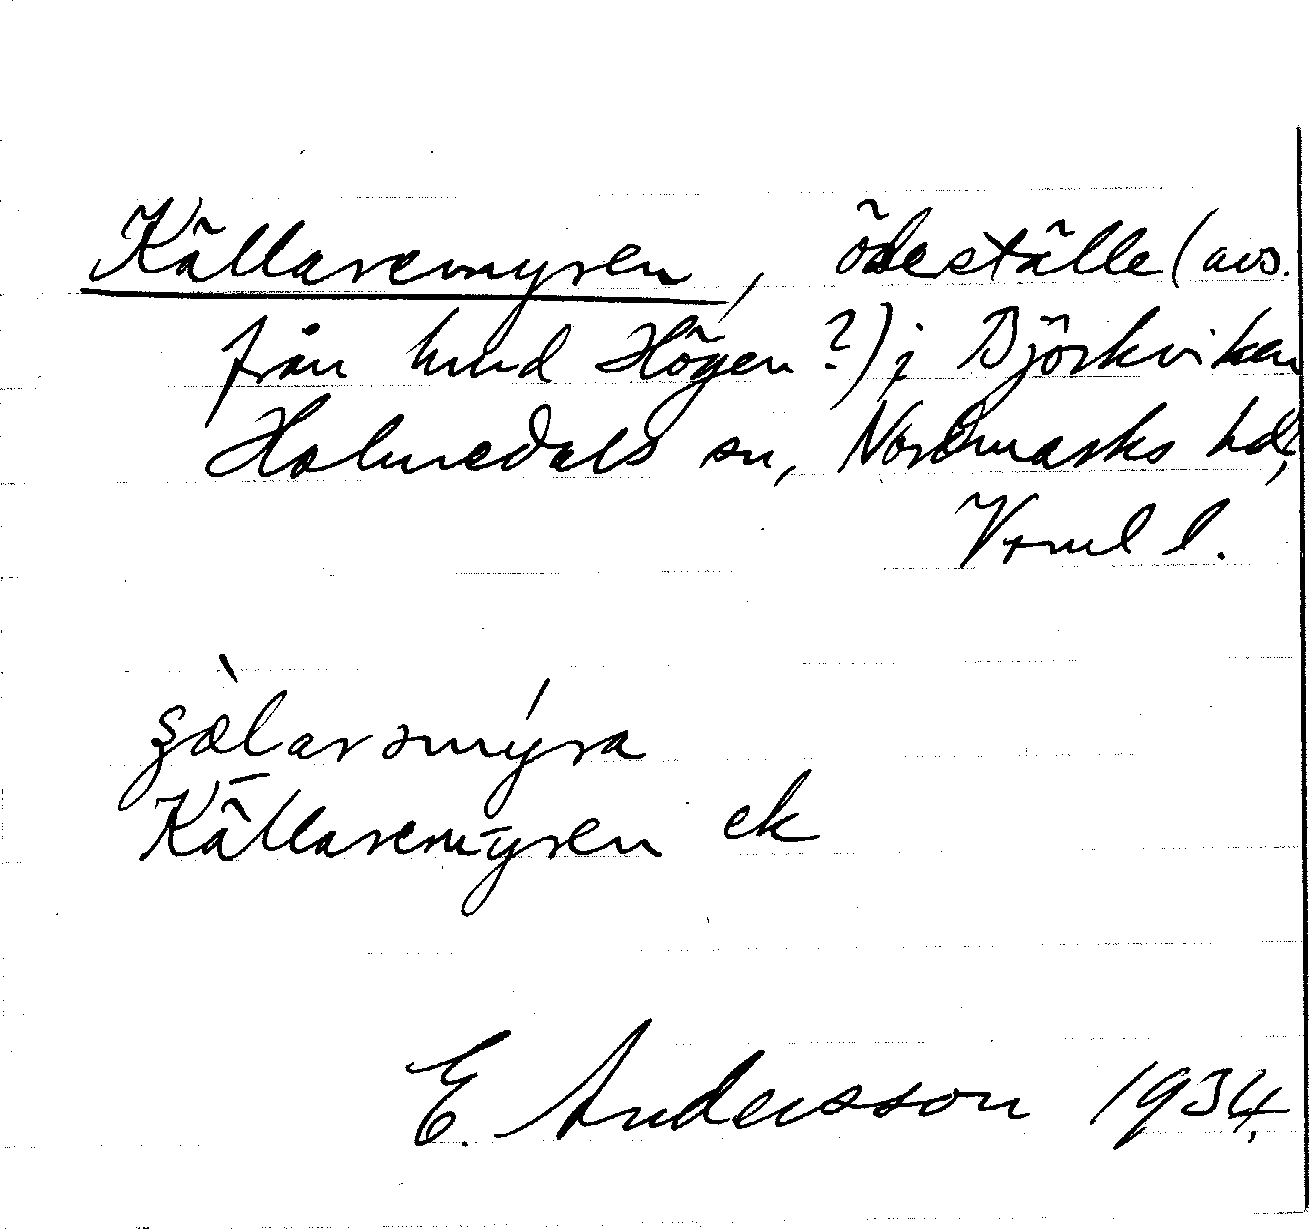 Källaremyren, ödeställe (avs.
från hmd Högen?) i Björkviken
Holmedals sn, Nordmarks hd,
Vrml l.
Källaremyren ek
E. Andersson 1934.